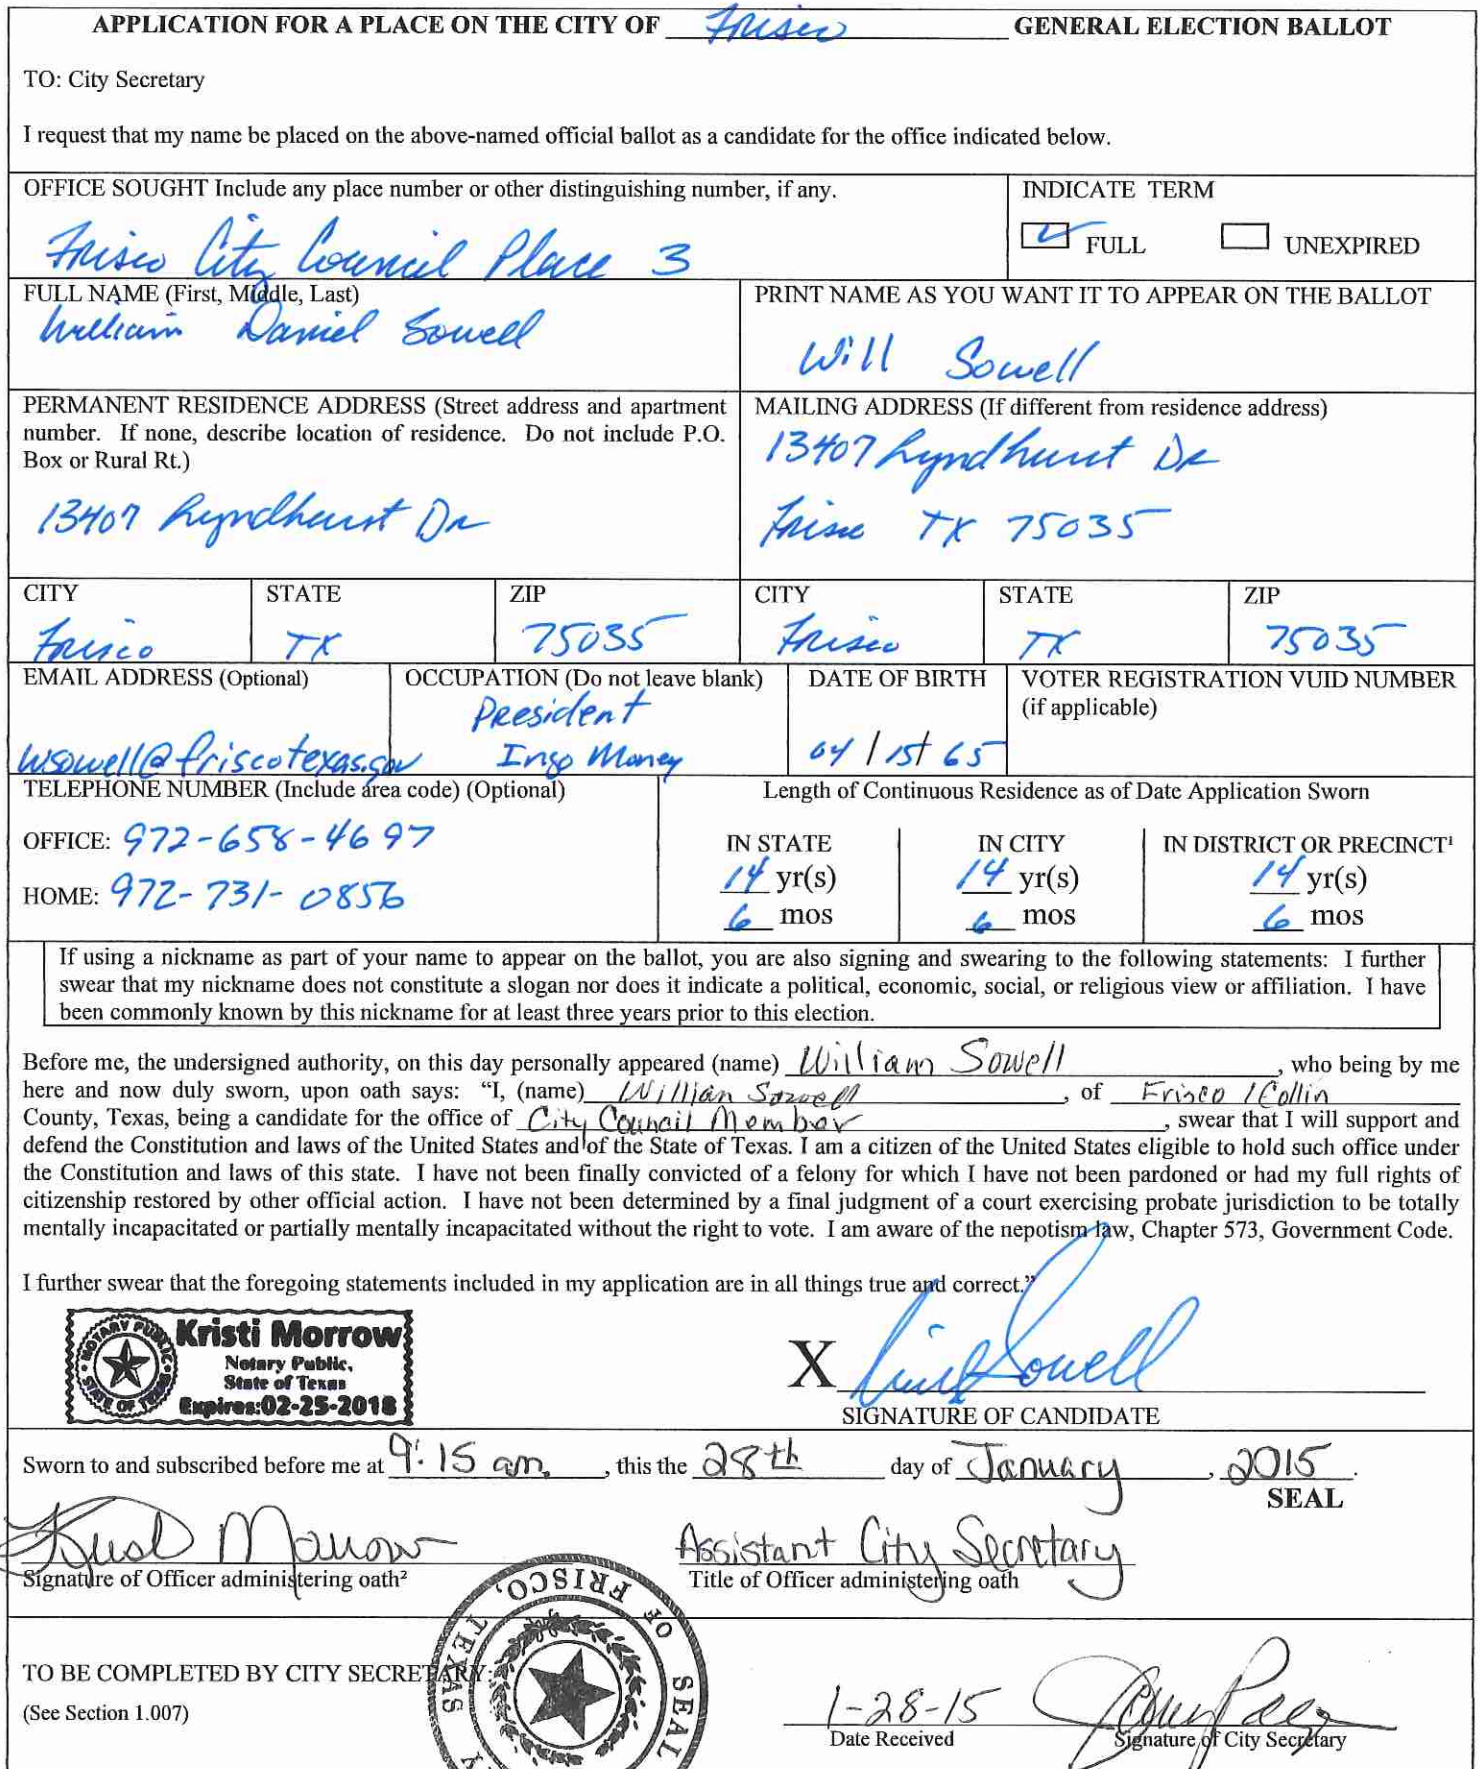 APPLICATION FOR A PLACE ON THE CITY OF Frisco GENERAL ELECTION BALLOT
TO: City Secretary
I request that my name be placed on the above-named official ballot as a candidate for the office indicated below.
OFFICE SOUGHT Include any place number or other distinguishing number, if any.
Frisco City Council Place 3
INDICATE TERM
FULL UNEXPIRED
FULL NAME (First, Middle, Last)
William Daniel Sowell
PRINT NAME AS YOU WANT IT TO APPEAR ON THE BALLOT
Will Sowell
PERMANENT RESIDENCE ADDRESS (Street address and apartment
number. If none, describe location of residence. Do not include P.O.
Box or Rural Rt.)
13407 Lyndhurst Dr
MAILING ADDRESS (If different from residence address)
13407 Lyndhurst Dr
Frisco TX 75035
CITY STATE ZIP CITY STATE ZIP
Frisco TX 75035 Frisco TX 75035
EMAIL ADDRESS (Optional)
wsowell@friscotexas.gov
OCCUPATION (Do not leave blank)
President
Ingo Money
DATE OF BIRTH
04/15/65
VOTER REGISTRATION VUID NUMBER
(if applicable)
TELEPHONE NUMBER (Include area code) (Optional)
OFFICE: 972-658-4697
HOME: 972-731-0856
Length of Continuous Residence as of Date Application Sworn
IN STATE IN CITY IN DISTRICT OR PRECINCT¹
14 yr(s) 14 yr(s) 14 yr(s)
6 mos 6 mos 6 mos
If using a nickname as part of your name to appear on the ballot, you are also signing and swearing to the following statements: I further
swear that my nickname does not constitute a slogan nor does it indicate a political, economic, social, or religious view or affiliation. I have
been commonly known by this nickname for at least three years prior to this election.
Before me, the undersigned authority, on this day personally appeared (name) William Sowell, who being by me
here and now duly sworn, upon oath says: “I, (name) William Sowell, of Frisco / Collin
County, Texas, being a candidate for the office of City Council Member, swear that I will support and
defend the Constitution and laws of the United States and of the State of Texas. I am a citizen of the United States eligible to hold such office under
the Constitution and laws of this state. I have not been finally convicted of a felony for which I have not been pardoned or had my full rights of
citizenship restored by other official action. I have not been determined by a final judgment of a court exercising probate jurisdiction to be totally
mentally incapacitated or partially mentally incapacitated without the right to vote. I am aware of the nepotism law, Chapter 573, Government Code.
I further swear that the foregoing statements included in my application are in all things true and correct.”
NOTARY PUBLIC
STATE OF TEXAS
Kristi Morrow
Notary Public,
State of Texas
Expires:02-25-2018
X Will Sowell
SIGNATURE OF CANDIDATE
Sworn to and subscribed before me at 9:15 am, this the 28th day of January, 2015.
SEAL
Kristi Morrow
Signature of Officer administering oath²
Assistant City Secretary
Title of Officer administering oath
SEAL OF FRISCO, TEXAS
TO BE COMPLETED BY CITY SECRETARY:
(See Section 1.007)
1-28-15
Date Received
Signature of City Secretary